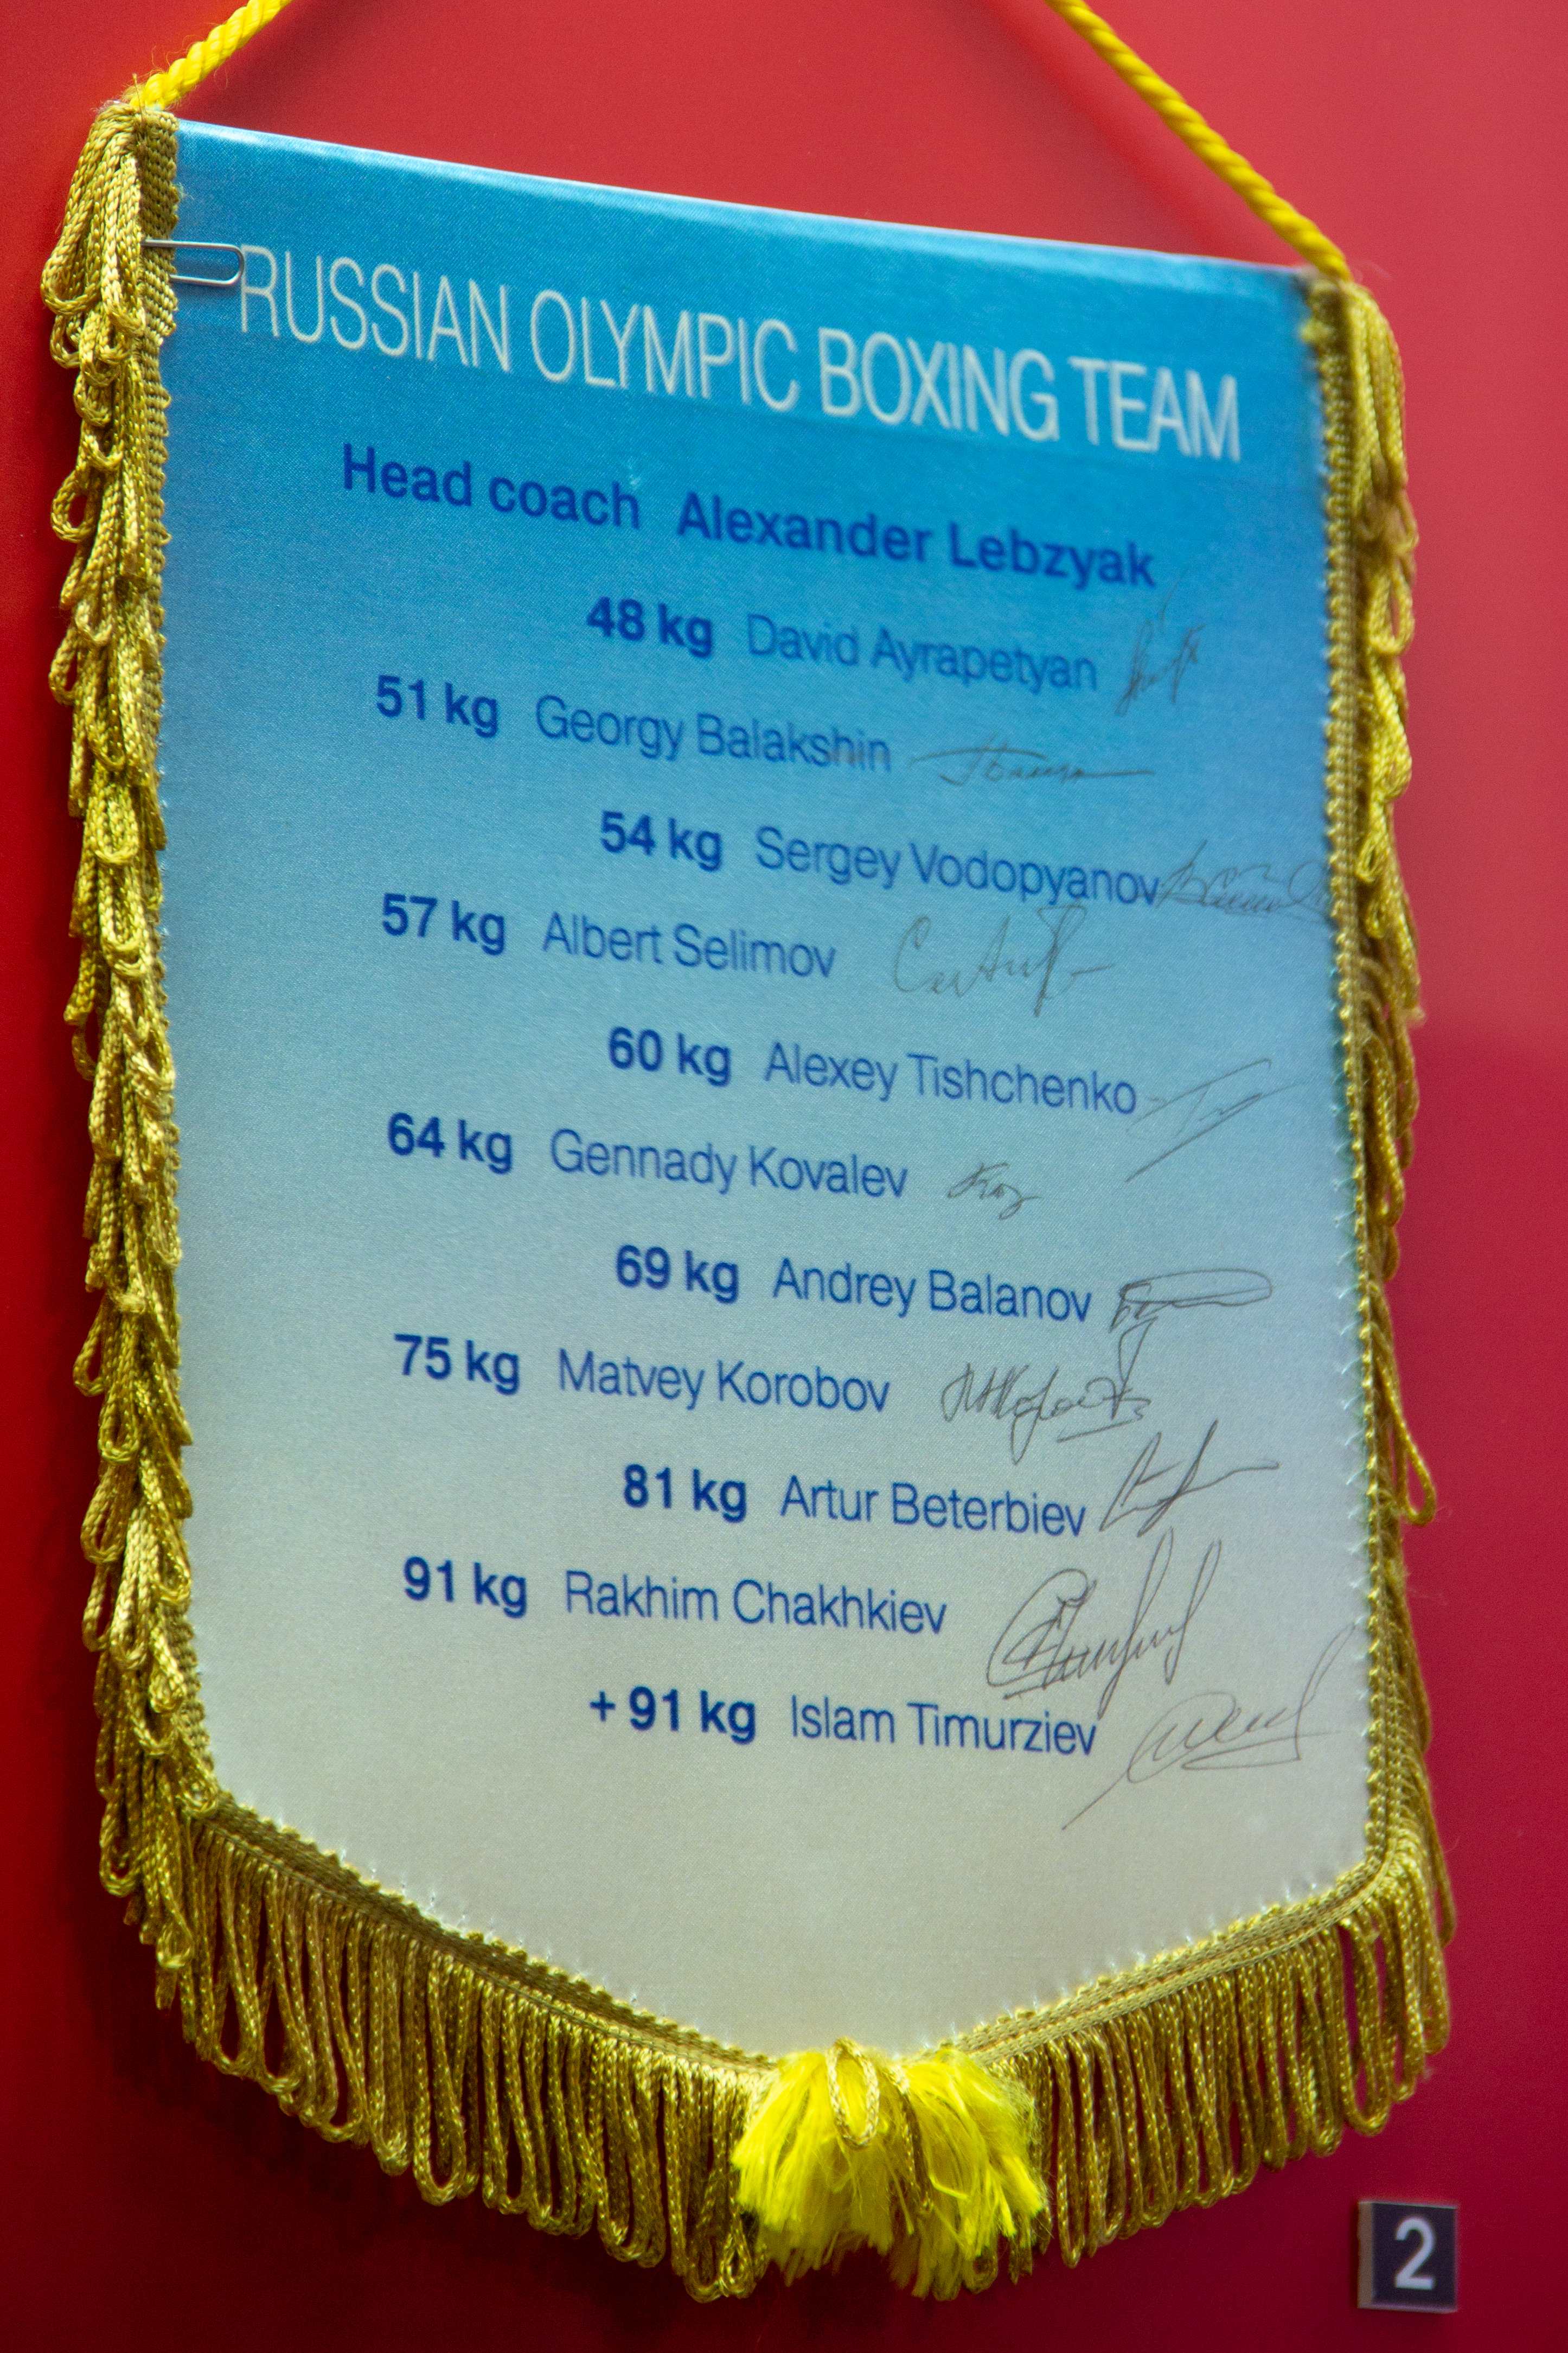 RUSSIAN OLYMPIC BOXING TEAM
Head coach Alexander Lebzyak
48 kg David Ayrapetyan
51 kg Georgy Balakshin
54 kg Sergey Vodopyanov
57 kg Albert Selimov
60 kg Alexey Tishchenko
64 kg Gennady Kovalev
69 kg Andrey Balanov
75 kg Matvey Korobov
81 kg Artur Beterbiev
91 kg Rakhim Chakhkiev
+ 91 kg Islam Timurziev
2